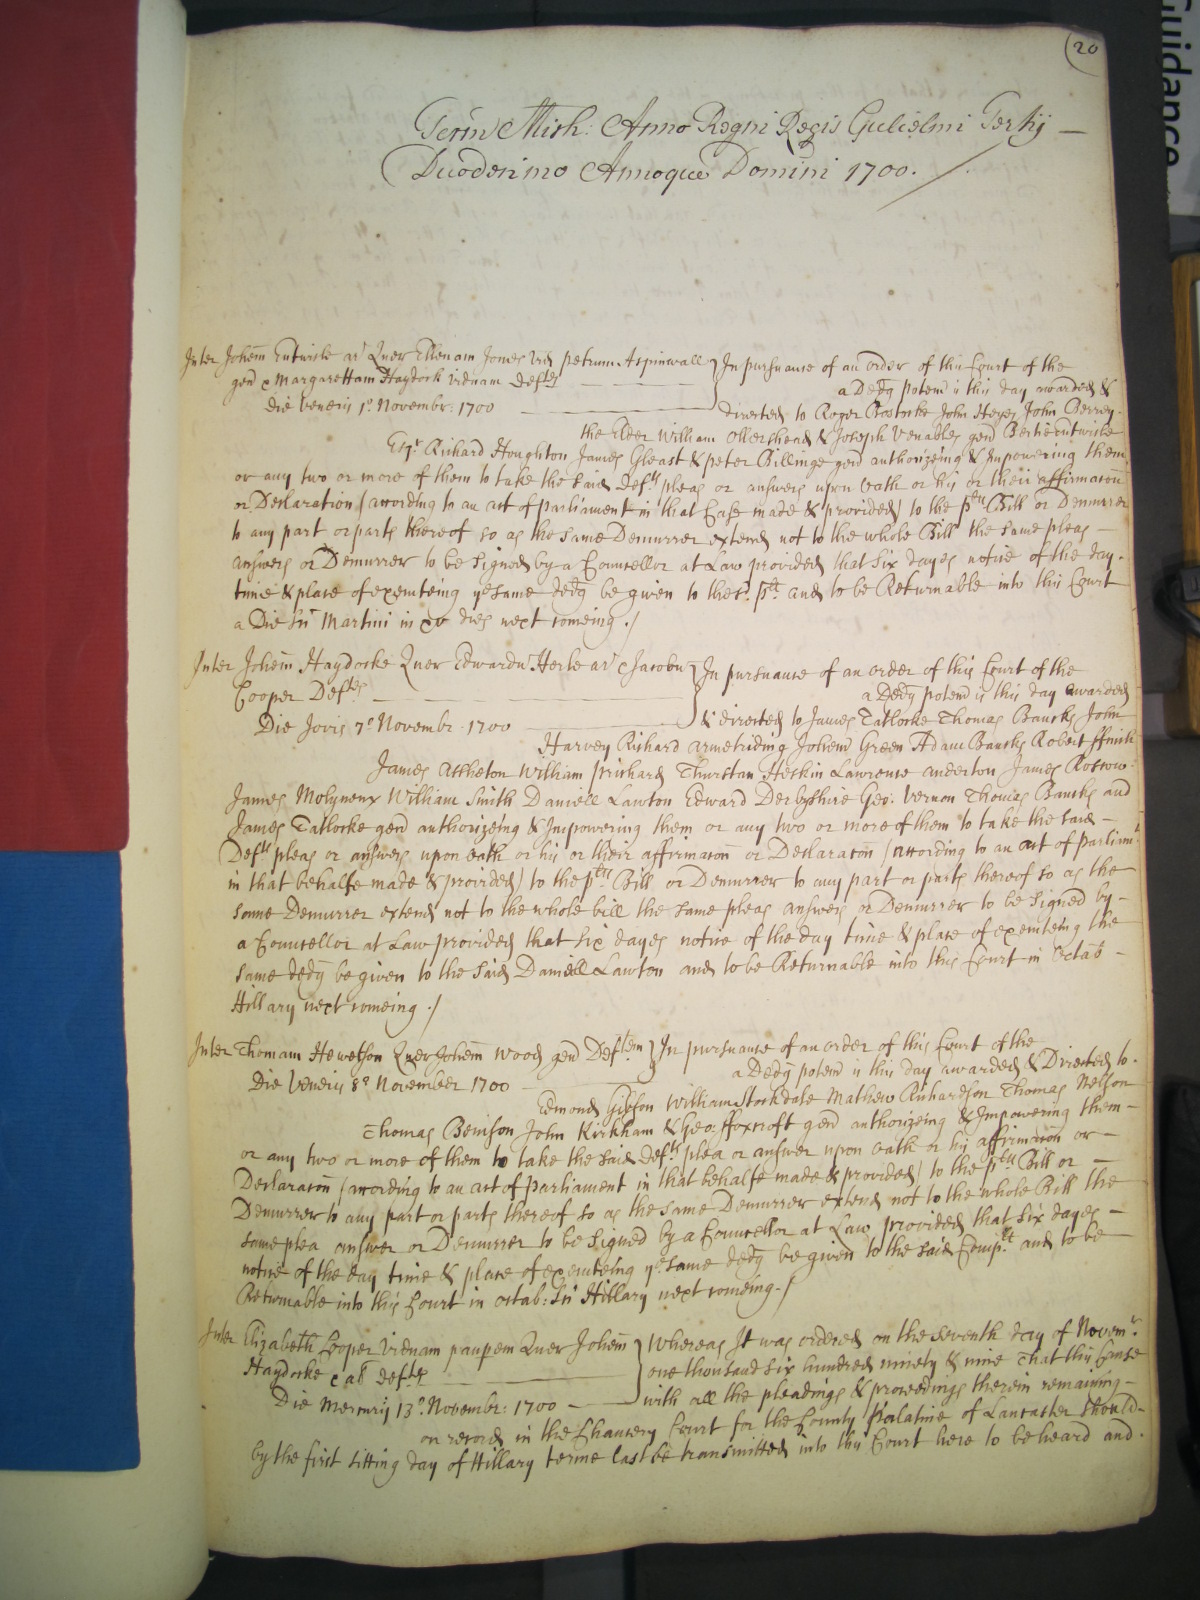 (20
Term Mich: Anno Regni Regis Gulielmi Tertij —
Duodecimo Annoque Domini 1700.
Inter Johem Entwisle ar Quer Ellenam Jones vid petrum Aspinwall
gen & Margarettam Haydock viduam Deftes
Die Veneris 1o Novembr: 1700
In pursuance of an order of this Court of the
a Ded potem is this day awarded &
directed to Roger Bostocke John Heyes John Berrey
the Elder William Ollershead & Joseph Venables gen Bertie Entwisle
Esqr Richard Houghton James Gleast & peter Billinge gen authorizeing & Impowering them
or any two or more of them to take the said Defts pleas or answers upon oath or his or their affirmacon
or Declaration (according to an act of parliament in that Case made & provided) to the plts Bill or Demurrer
to any part or parts thereof so as the same Demurrer extend not to the whole Bill the same pleas —
answers or Demurrer to be Signed by a Councellor at Law provided that Six dayes notice of the day
time & place of executeing ye same ded be given to the sd plt and to be Returnable into this Court
a Die Sti Martini in xv dies next comeing ./
Inter Johem Haydocke Quer Edwardu Herle ar & Jacobu
Cooper Deftes
Die Jovis 7o Novembr 1700
In pursuance of an order of this Court of the
a Ded potem is this day awarded
& directed to James Tatlocke Thomas Bancks John
Harvey Richard Armetriding Johem Green Adam Bancks Robert ffinch
James Assheton William Prichard Thurstan Heskin Lawrence Anderton James Roscow
James Molyneux William Smith Daniell Lawton Edward Derbyshire Geo: Vernon Thomas Bancks and
James Tatlocke gen authorizeing & Impowering them or any two or more of them to take the said —
Defts pleas or answers upon oath or his or their affirmacon or Declaracon (according to an act of parliamt
in that behalfe made & provided) to the plts Bill or Demurrer to any part or parts thereof so as the
same Demurrer extend not to the whole bill the same pleas answers or Demurrer to be Signed by —
a Councellor at Law provided that Six dayes notice of the day time & place of executeing the
same ded be given to the said Daniell Lawton and to be Returnable into this Court in Octab —
Hillary next comeing ./
Inter Thomam Hewetson Quer Johem Wood gen Deftem
Die Veneris 8o November 1700
In pursuance of an order of this Court of the
a Ded potem is this day awarded & Directed to
Edmond Gibson William Stockdale Mathew Richardson Thomas Nelson
Thomas Benison John Kirkham & Geo: ffoxcroft gen authorizeing & Impowering them —
or any two or more of them to take the said Defts plea or answer upon oath or his affirmacon or —
Declaracon (according to an act of parliament in that behalfe made & provided) to the plts Bill or —
Demurrer to any part or parts thereof so as the same Demurrer extend not to the whole Bill the
same plea answer or Demurrer to be Signed by a Councellor at Law provided that Six dayes —
notice of the day time & place of executeing ye same ded be given to the said Complt and to be
Returnable into this Court in octab: Sti Hillary next comeing ./
Inter Elizabeth Cooper viduam paupem Quer Johem
Haydocke & al Deftes
Die Mercurij 13o Novembr: 1700
Whereas It was ordered on the seventh day of Novembr
one thousand six hundred ninety & nine That this Cause
with all the pleadings & proceedings therein remaining —
on record in the Chancery Court for the County Palatine of Lancaster should
by the first sitting day of Hillary terme last be transmitted into this Court here to be heard and
Guidance